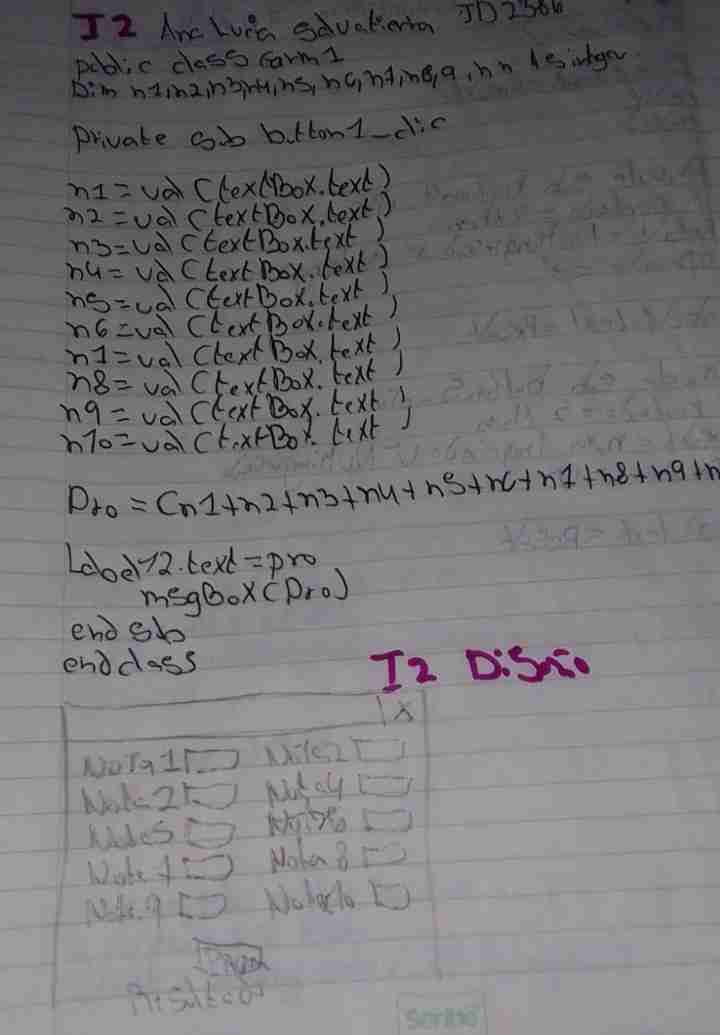 I2 Ana Lucia Salvatierra JD2386
public class Form1
Dim n1,n2,n3,n4,n5,n6,n7,n8,9,nn As intger
private sub button1_clic
n1=val(textBox.text)
n2=val(textBox.text)
n3=val(textBox.text)
n4=val(textBox.text)
n5=val(textBox.text)
n6=val(textBox.text)
n7=val(textBox.text)
n8=val(textBox.text)
n9=val(textBox.text)
n10=val(textBox.text
Pro=(n1+n2+n3+n4+n5+n6+n7+n8+n9+n
Label12.text=pro
msgBox(Pro)
end sub
end class
I2 Diseño
X
Nota1 Nota2
Nota2 Nota4
Nota5 Nota6
Nota7 Nota8
Nota9 Nota10
Resultado
Scribe